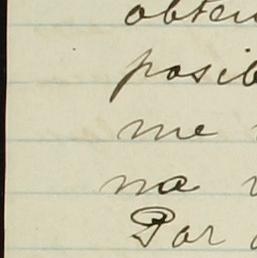 obten
posib
me
na
Por